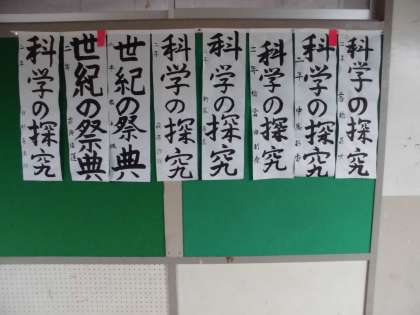 科学の探究
世紀の祭典
世紀の祭典
科学の探究
科学の探究
科学の探究
科学の探究
科学の探究